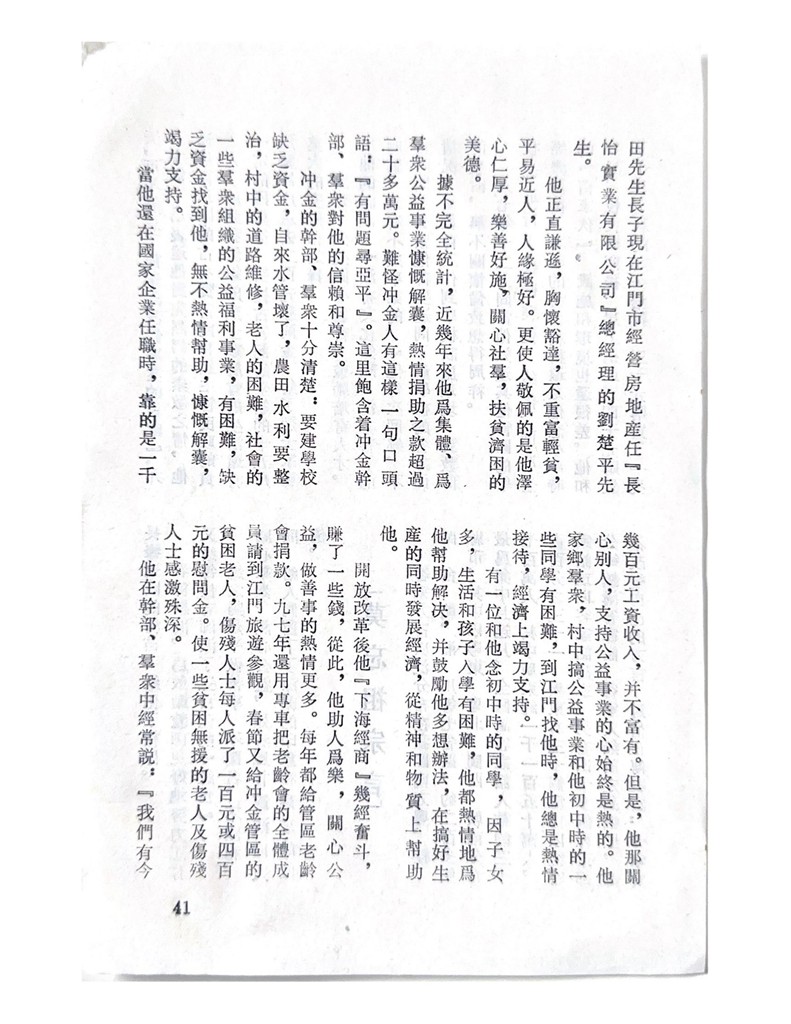 田先生長子現在江門市經營房地産任『長
怡實業有限公司』總經理的劉楚平先
生。
他正直謙遜，胸懷豁達，不重富輕貧，
平易近人，人緣極好。更使人敬佩的是他澤
心仁厚，樂善好施，關心社羣，扶貧濟困的
美德。
據不完全統計，近幾年來他爲集體、爲
羣衆公益事業慷慨解囊，熱情捐助之款超過
二十多萬元。難怪冲金人有這樣一句口頭
語：『有問題尋亞平』。這里飽含着冲金幹
部、羣衆對他的信賴和尊崇。
冲金的幹部、羣衆十分清楚：要建學校
缺乏資金，自來水管壞了，農田水利要整
治，村中的道路維修，老人的困難，社會的
一些羣衆組織的公益福利事業，有困難，缺
乏資金找到他，無不熱情幫助，慷慨解囊，
竭力支持。
當他還在國家企業任職時，靠的是一千
幾百元工資收入，并不富有。但是，他那關
心别人，支持公益事業的心始終是熱的。他
家鄉羣衆，村中搞公益事業和他初中時的一
些同學有困難，到江門找他時，他總是熱情
接待，經濟上竭力支持。
有一位和他念初中時的同學，因子女
多，生活和孩子入學有困難，他都熱情地爲
他幫助解决，并鼓勵他多想辦法，在搞好生
産的同時發展經濟，從精神和物質上幫助
他。
開放改革後他『下海經商』幾經奮斗，
賺了一些錢，從此，他助人爲樂，關心公
益，做善事的熱情更多。每年都給管區老齡
會捐款。九七年還用專車把老齡會的全體成
員請到江門旅遊參觀，春節又給冲金管區的
貧困老人，傷殘人士每人派了一百元或四百
元的慰問金。使一些貧困無援的老人及傷殘
人士感激殊深。
他在幹部、羣衆中經常説：『我們有今
41